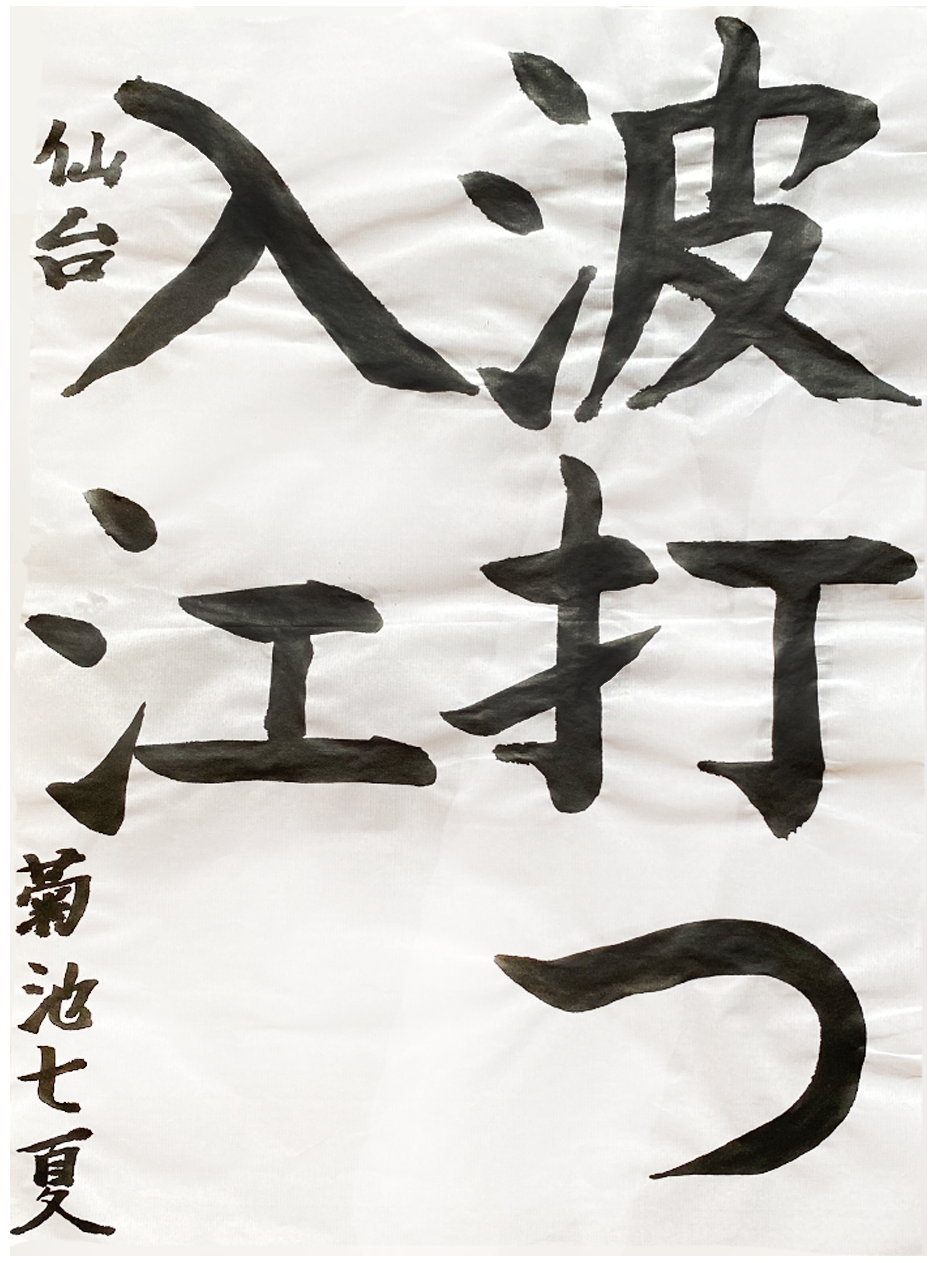 波打つ
入江
仙台
菊池七夏